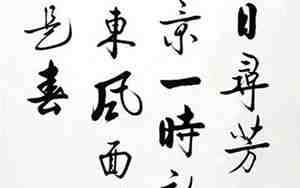 日尋芳
景一時
東風面
是春